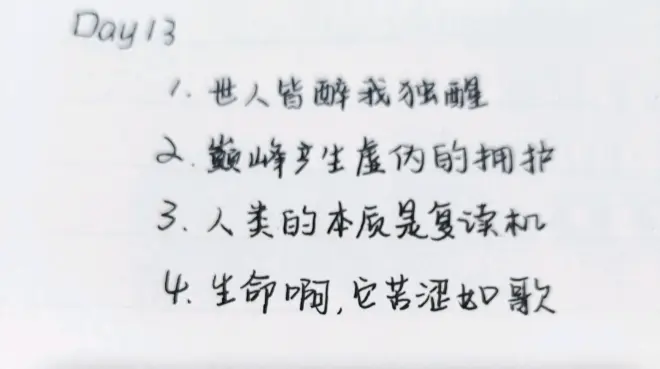 Day 13
1. 世人皆醉我独醒
2. 巅峰产生虚伪的拥护
3. 人类的本质是复读机
4. 生命啊,它苦涩如歌